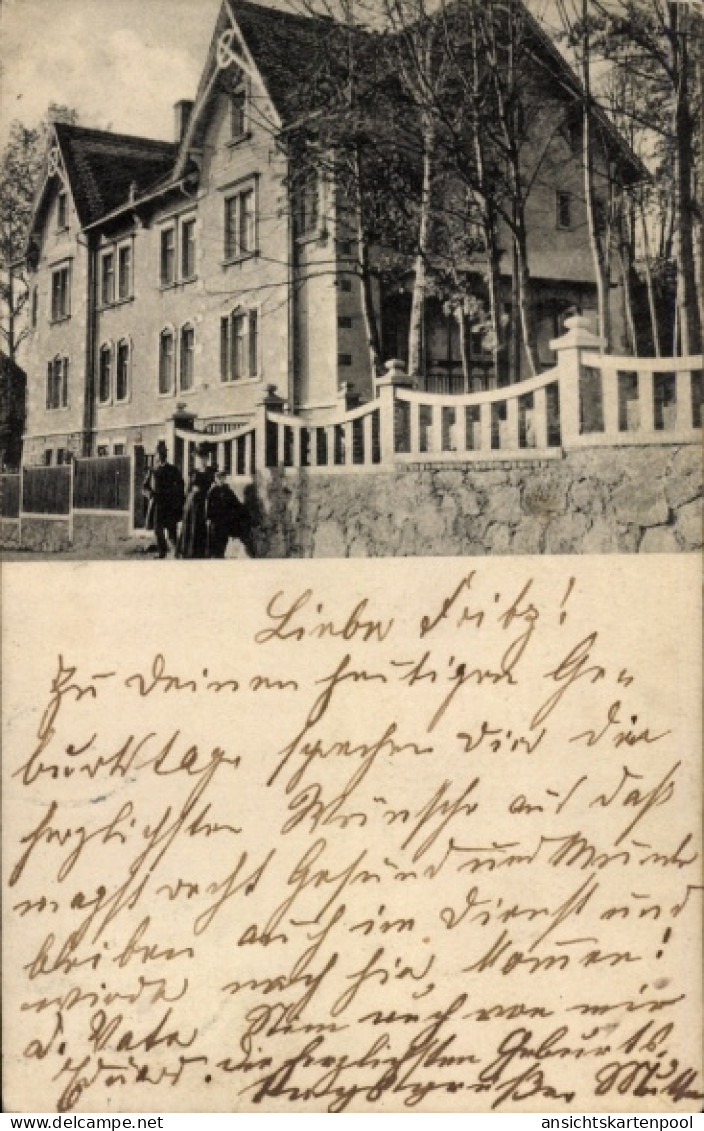 Lieber Fritz!
Zu Deinem heutigen Ge-
burtstage sprechen Dir die
herzlichsten Wünsche aus daß
magst recht Gesund und Munter
bleiben auch im Dienst und
wieder nach hier kommen!
d. Vater auch von mir
Eduard. die herzlichsten Geburts-
tagsgrüße Mutter
ansichtskartenpool